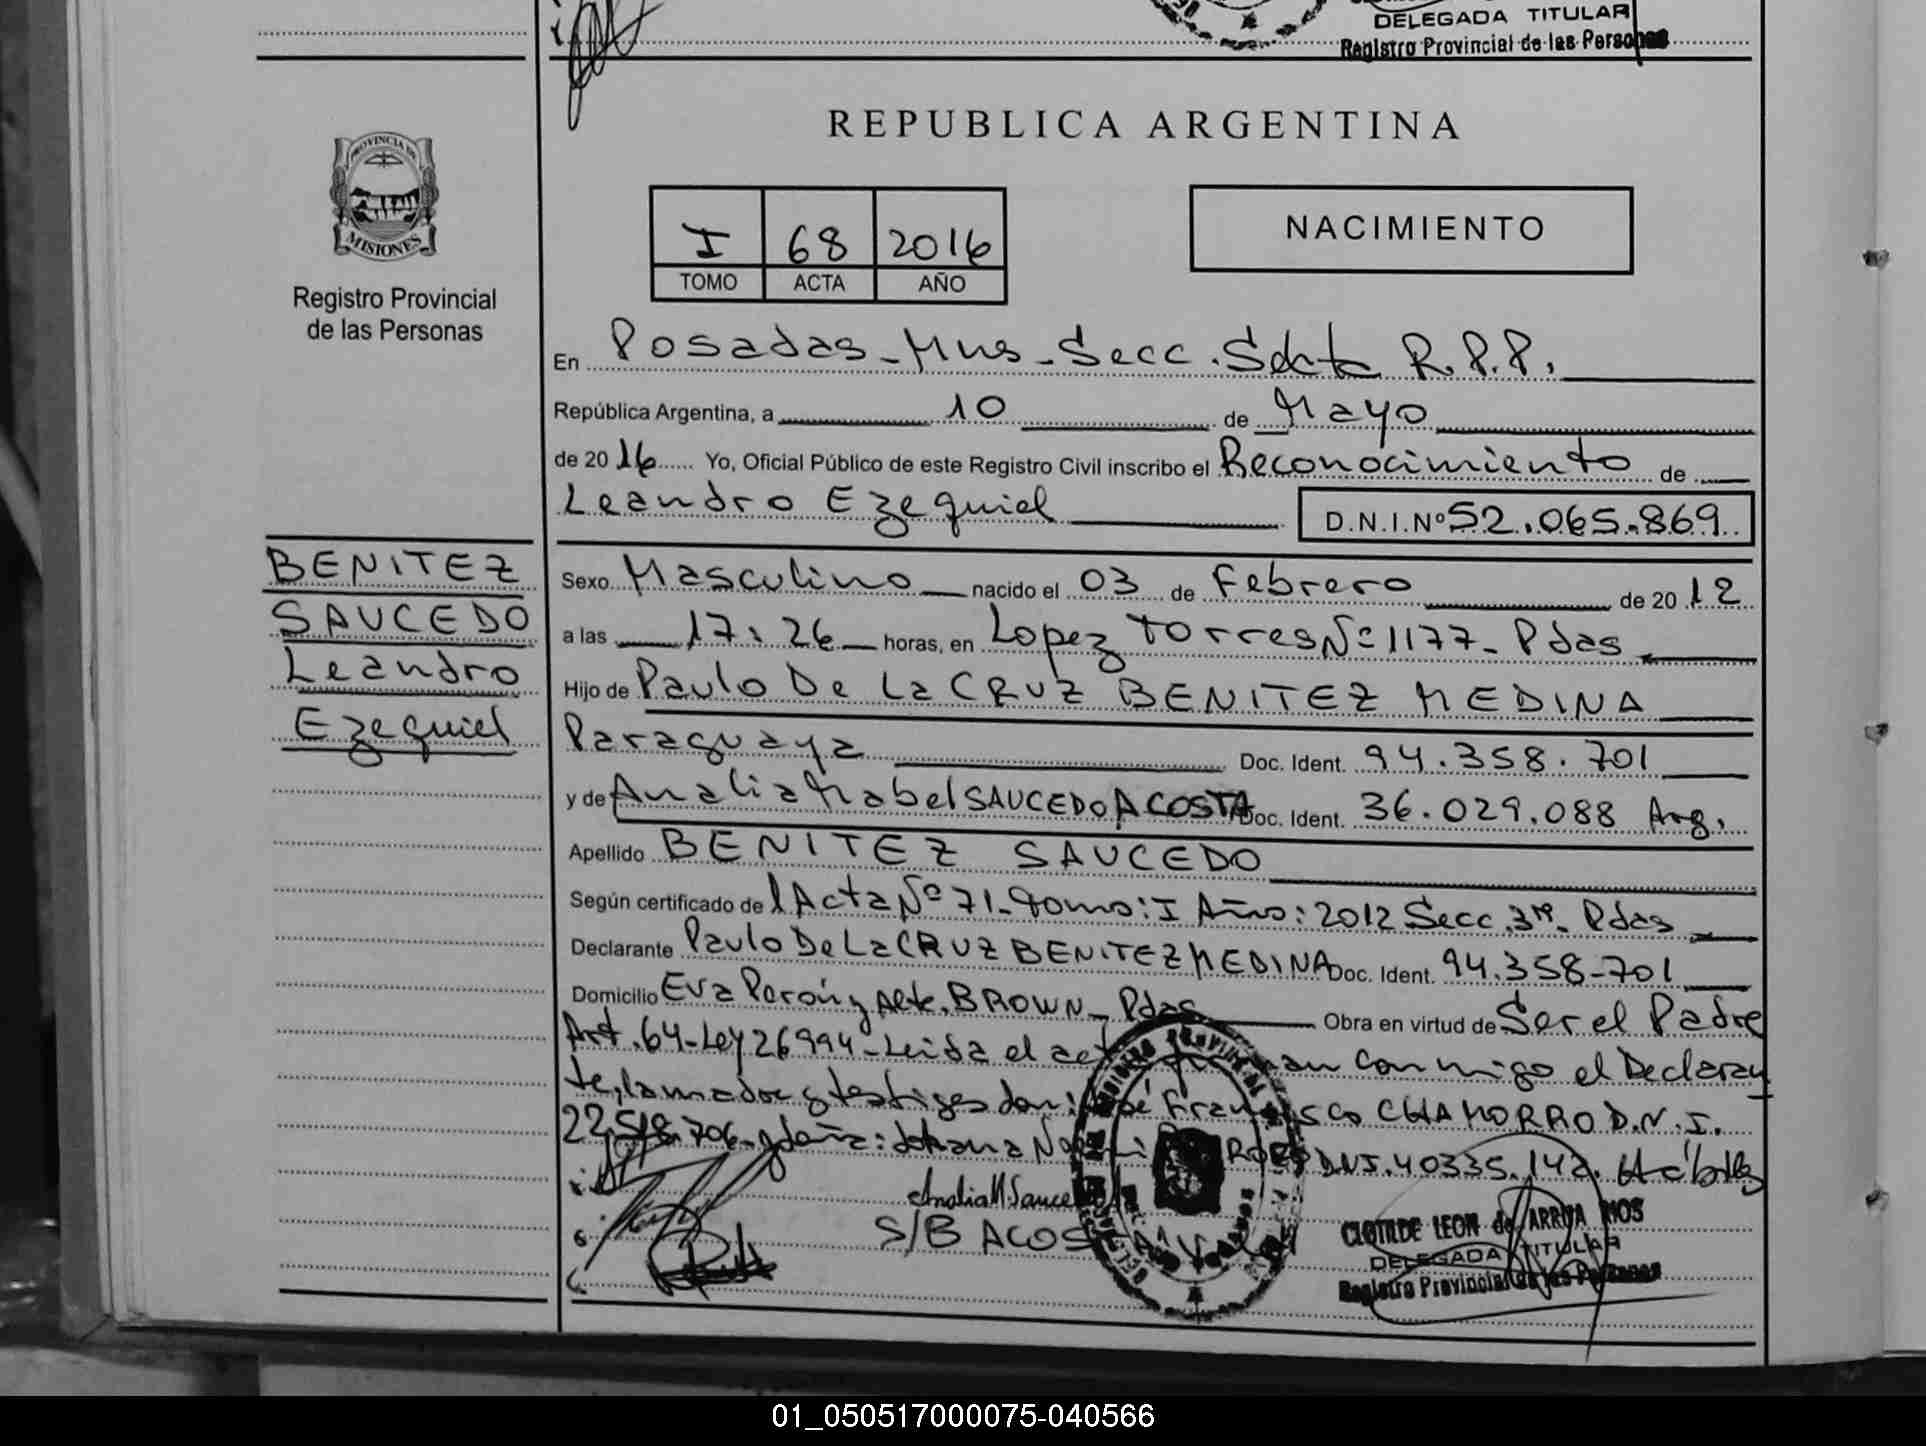 DELEGADA TITULAR
Registro Provincial de las Personas
PROVINCIA DE
MISIONES
Registro Provincial
de las Personas
REPUBLICA ARGENTINA
I 68 2016
TOMO ACTA AÑO
NACIMIENTO
En Posadas - Mnes - Secc. Sexta R.P.P.
República Argentina, a 10 de Mayo
de 2016 Yo, Oficial Público de este Registro Civil inscribo el Reconocimiento de
Leandro Ezequiel D.N.I.Nº 52.065.869
BENITEZ
SAUCEDO
Leandro
Ezequiel
Sexo Masculino nacido el 03 de Febrero de 2012
a las 17:26 horas, en Lopez Torres Nº 1177 - Pdas
Hijo de Paulo De La CRUZ BENITEZ MEDINA
Paraguaya Doc. Ident. 94.358.701
y de Analia Mabel SAUCEDO ACOSTA Doc. Ident. 36.029.088 Arg.
Apellido BENITEZ SAUCEDO
Según certificado del Acta Nº 71 - Tomo: I Año: 2012 Secc. 3ra. Pdas
Declarante Paulo De La CRUZ BENITEZ MEDINA Doc. Ident. 94.358-701
Domicilio Eva Perón y Alte. BROWN - Pdas Obra en virtud de Ser el Padre
Art. 64 - Ley 26994 - Leida el conmigo el Declaran
te, la madre y testigos don: José Francisco CHAMORRO D.N.I.
22.518.706 - y doña: Johana D.N.I. 40335.142. Hábiles
Analia M Sauce
S/B ACOSTA
CLOTILDE LEON de ARRUA MOS
DELEGADA TITULAR
Registro Provincial de las Personas
01_050517000075-040566